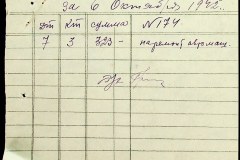 за 6 Октября 1942.
дт кт сумма № 174
7 3 323 – на ремонт автомаш.